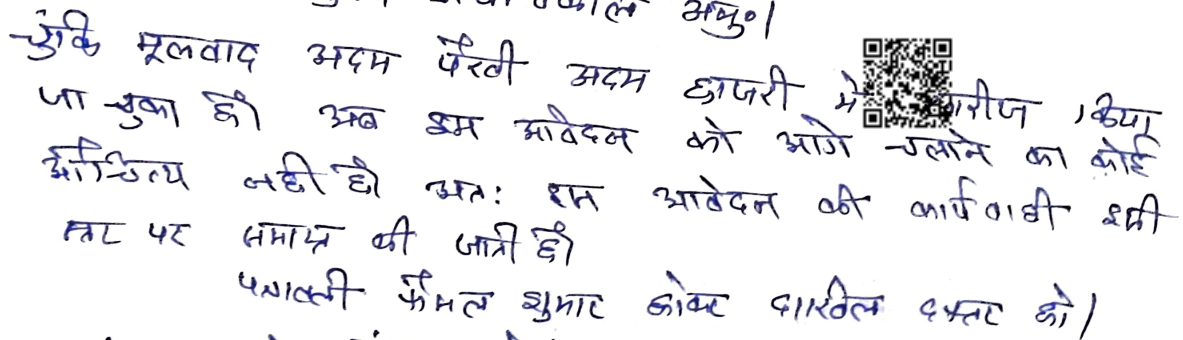 अनु०।
चुंकि मूलवाद अदम पैरवी अदम हाजरी मे खारीज किया
जा चुका है। अब इस आवेदन को आगे चलाने का कोई
औचित्य नही है। अतः इस आवेदन की कार्यवाही इसी
स्तर पर समाप्त की जाती है।
पत्रावली फैसल शुमार होकर दाखिल दफ्तर हो।